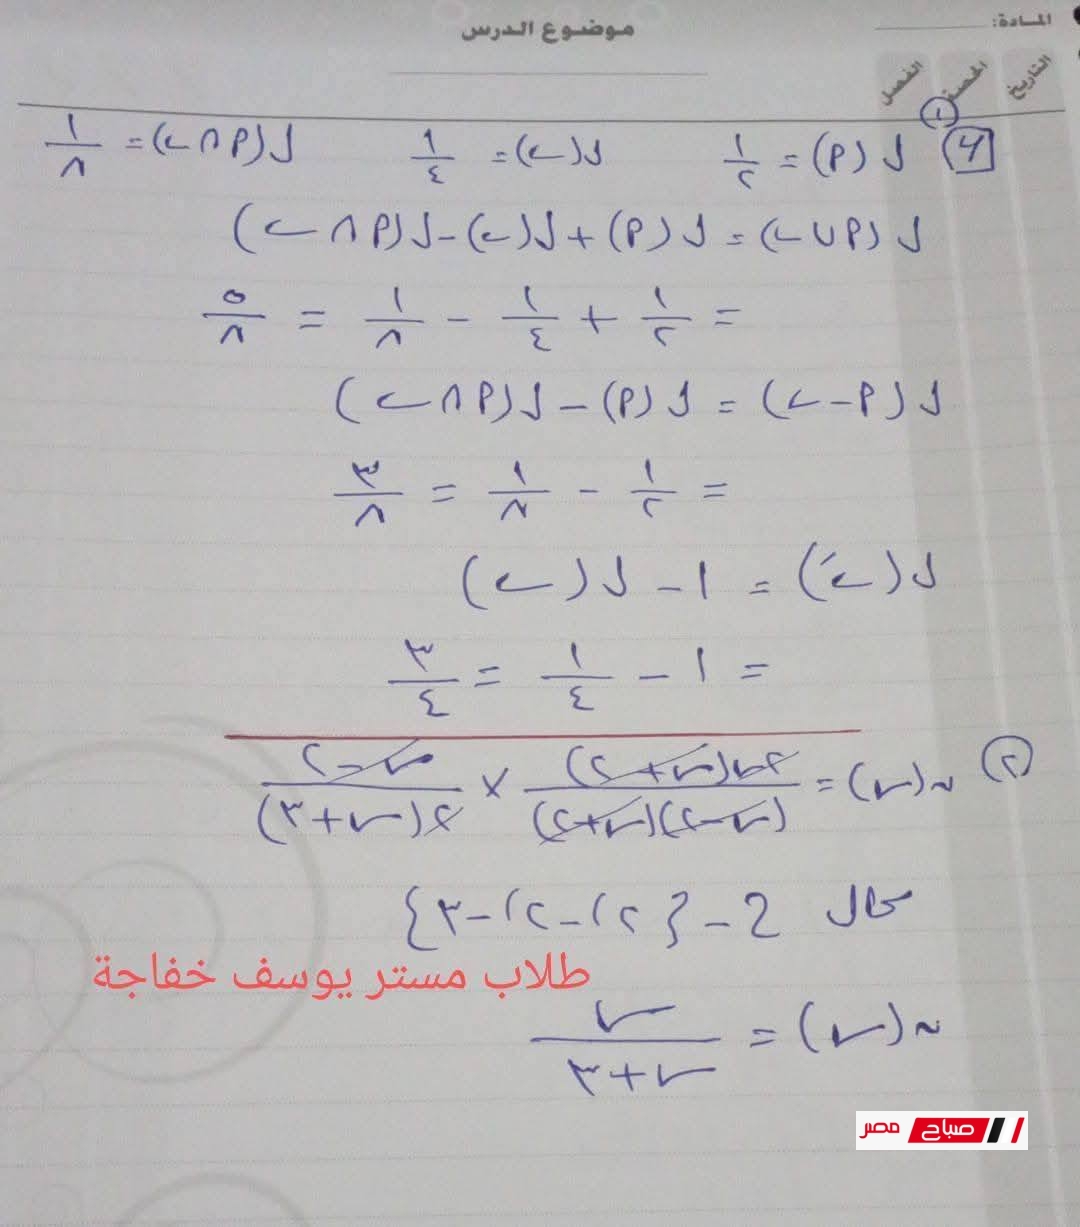 المادة:
موضوع الدرس
التاريخ
الحصة
الفصل
٤ ١ ل(P) = ١/٢ ل(ب) = ١/٤ ل(P ∩ ب) = ١/٨
ل(P ∪ ب) = ل(P) + ل(ب) - ل(P ∩ ب)
= ١/٢ + ١/٤ - ١/٨ = ٥/٨
ل(P - ب) = ل(P) - ل(P ∩ ب)
= ١/٢ - ١/٨ = ٣/٨
ل(بَ) = ١ - ل(ب)
= ١ - ١/٤ = ٣/٤
٢ ن(س) = ٢س(س+٢)/(س-٢)(س+٢) × س-٢/٢(س+٣)
مجال ح - {٢، -٢، -٣}
طلاب مستر يوسف خفاجة
ن(س) = س/س+٣
صباح مصر